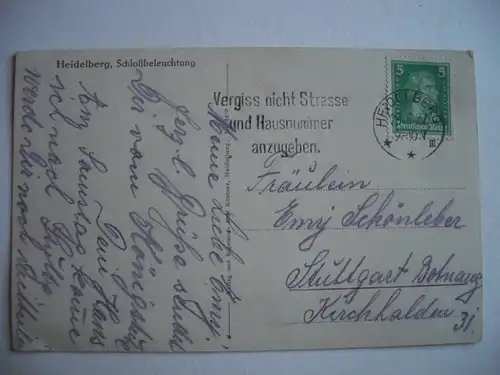 Heidelberg, Schloßbeleuchtung
Vergiss nicht Strasse
und Hausnummer
anzugeben.
HEIDELBERG
5 5
Deutsches Reich
Meine liebe Emy!
Herzl. Grüße sendet
Dir vom Königstuhl
Dein Hans
Am Samstag komme
ich nach Stuttg.
werde Dir noch
Fräulein
Emy Schönleber
Stuttgart Botnang
Kirchhalden
31.